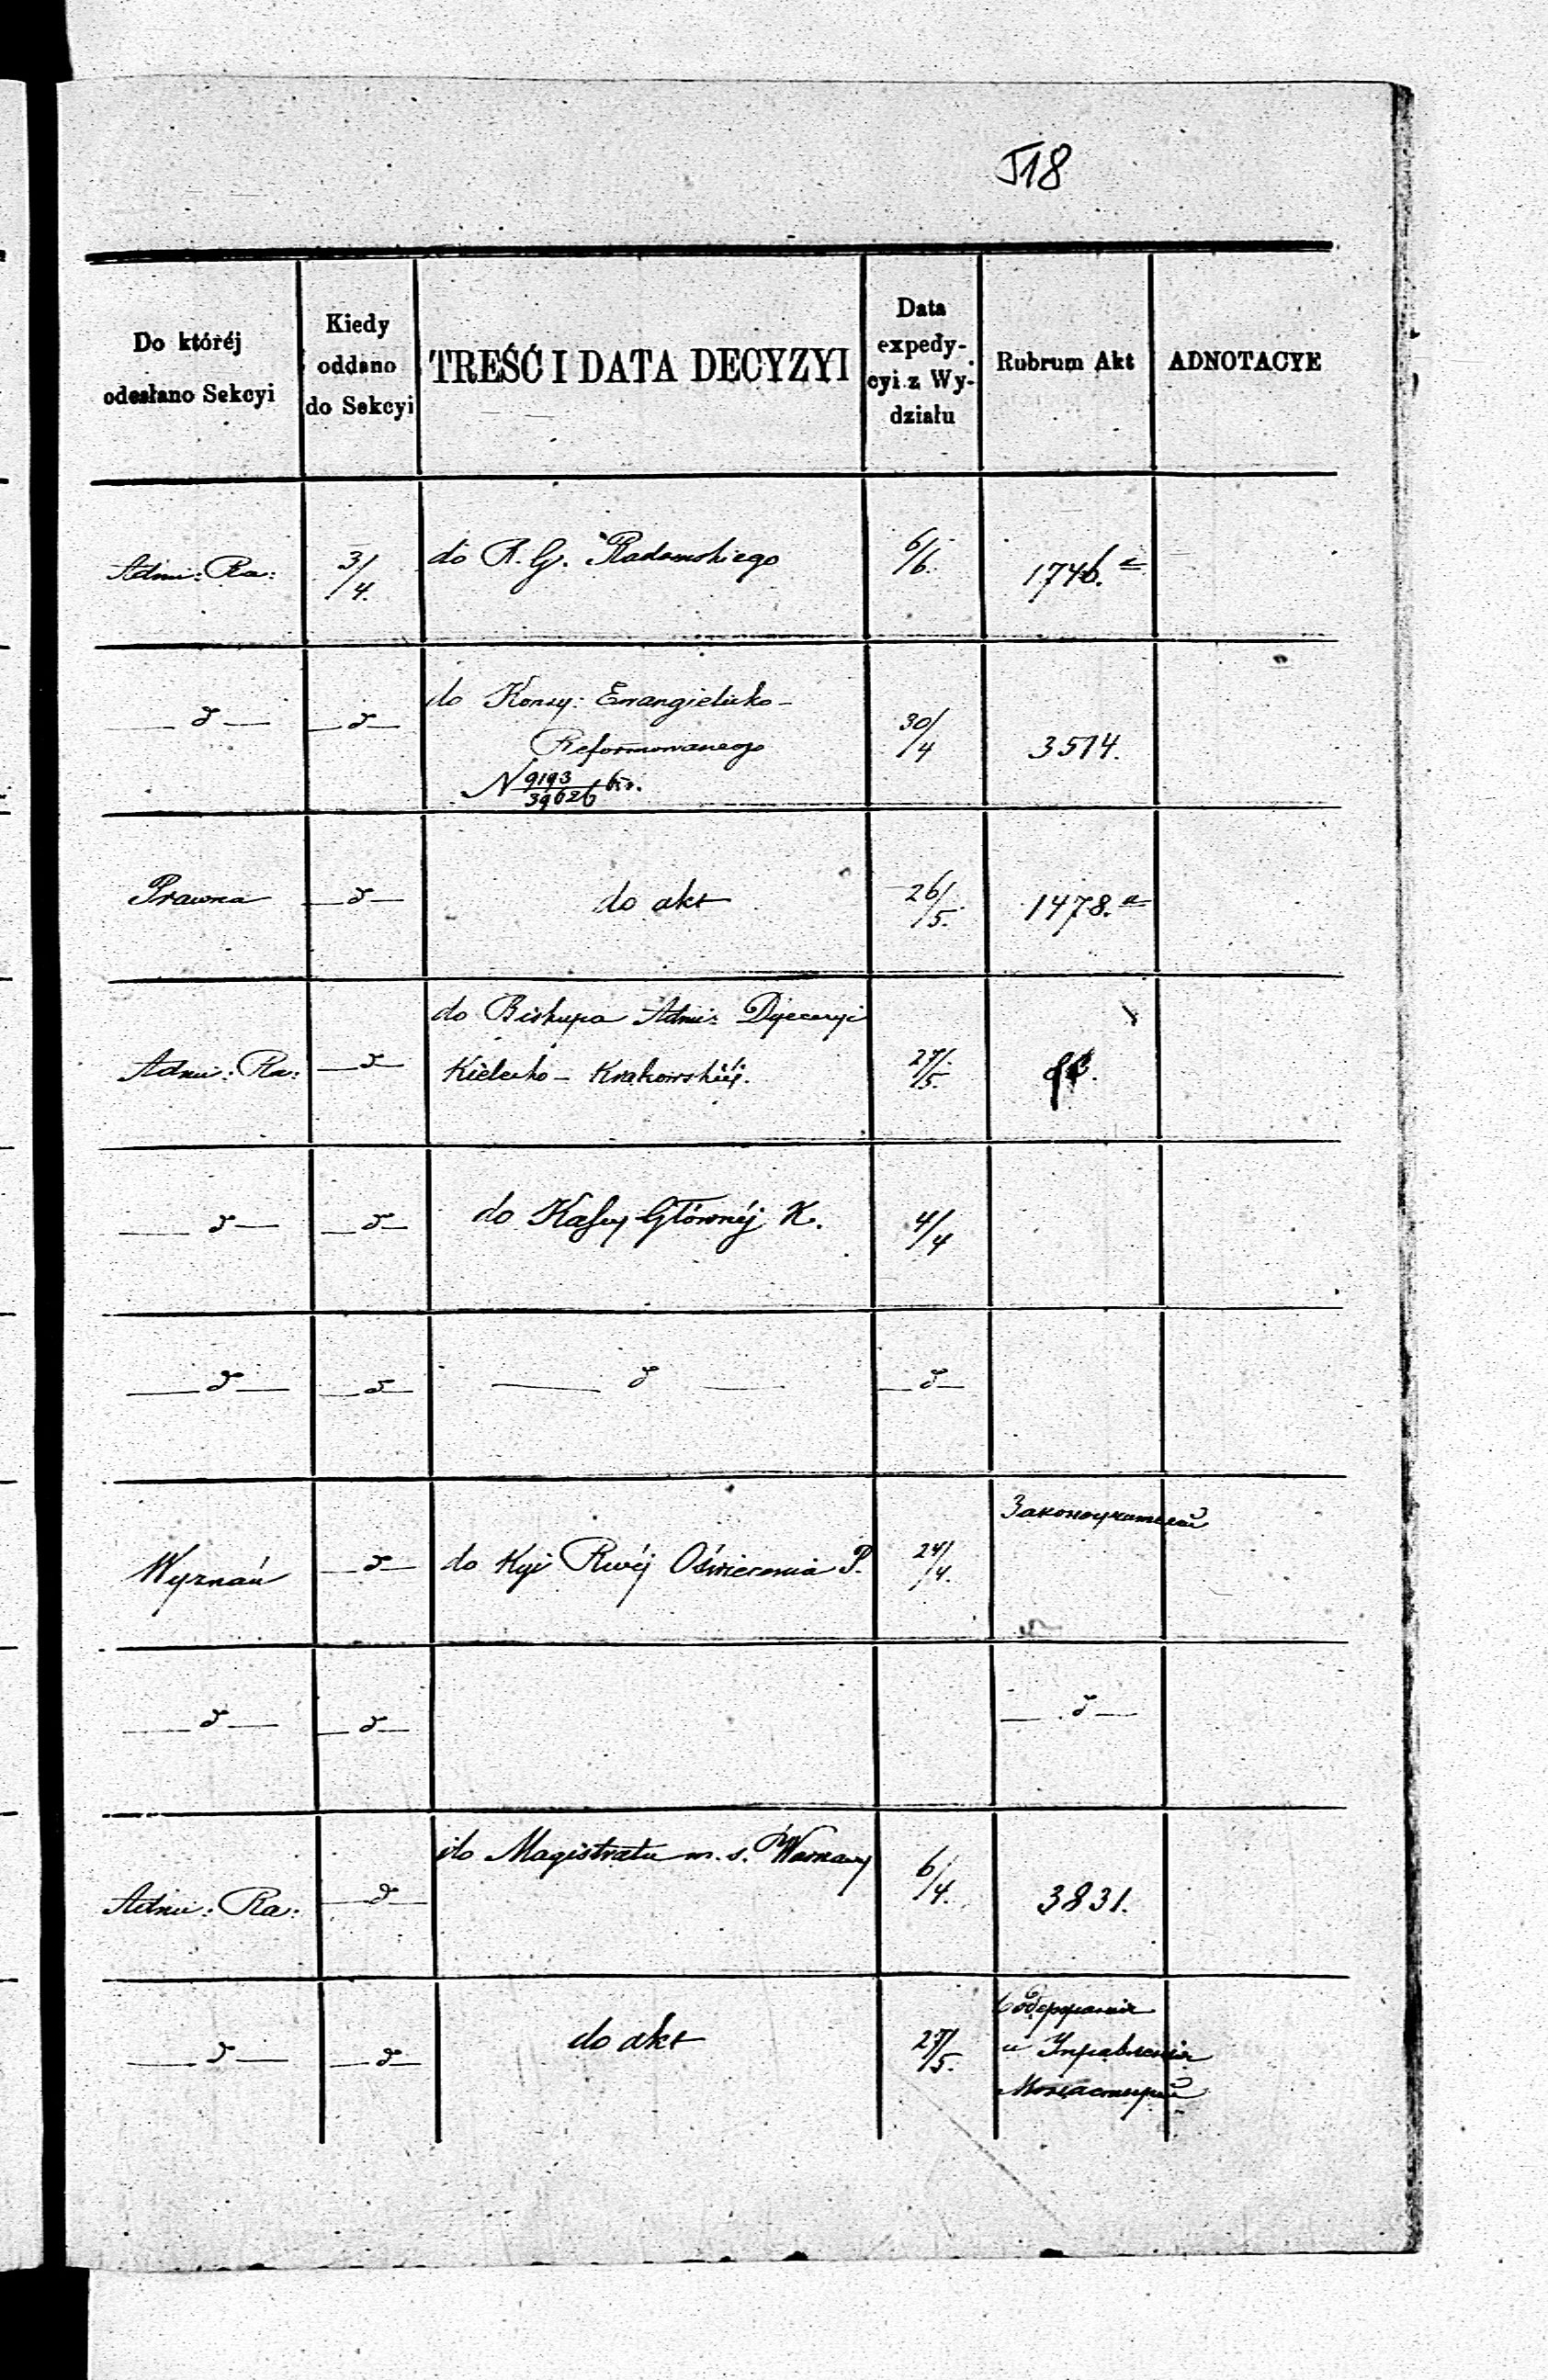 518
Do któréj
odesłano Sekcyi
Kiedy
oddano
do Sekcyi
TREŚĆ I DATA DECYZYI
Data
expedy-
cyi z Wy-
działu
Rubrum Akt
ADNOTACYE
Admi: Ra:
3/4.
do R. G. Radomskiego
6/6.
1746.
— d —
— d —
do Konsy: Ewangielicko-
Reformowanego
N 9193/39626
30/4
3514.
Prawna
— d —
do akt
26/5.
1478.
Admi: Ra:
— d —
do Biskupa Admi: Dyecezyi
Kielecko - Krakowskiéj.
27/5.
— d —
— d —
do Kassy Głównéj K.
4/4
— d —
— d —
— d —
— d —
Wyznań
— d —
do Kyi Rwéj Oświecenia P.
24/4.
Законоучителей
— d —
— d —
— d —
Admi: Ra:
— d —
do Magistratu m. s. Warszawy
6/4.
3831.
— d —
— d —
do akt
27/5.
Содержанія
и Управленія
Монастырей